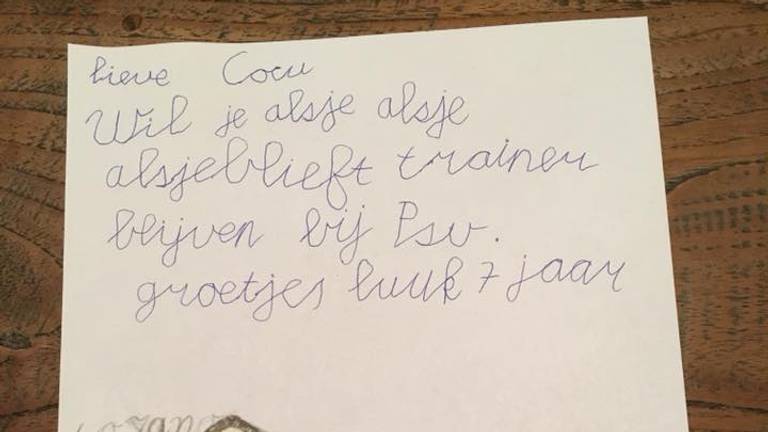 lieve Cocu
Wil je alsje alsje
alsjeblieft trainer
blijven bij Psv.
groetjes luuk 7 jaar